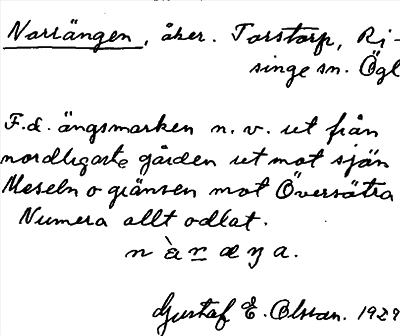 Norrängen, åker. Torstorp, Ri-
singe sn. Ögl
F.d. ängsmarken n.v. ut från
nordligaste gården ut mot sjön
Meseln o gränsen mot Översätra
Numera allt odlat.
Gustaf E. Olsson. 1929